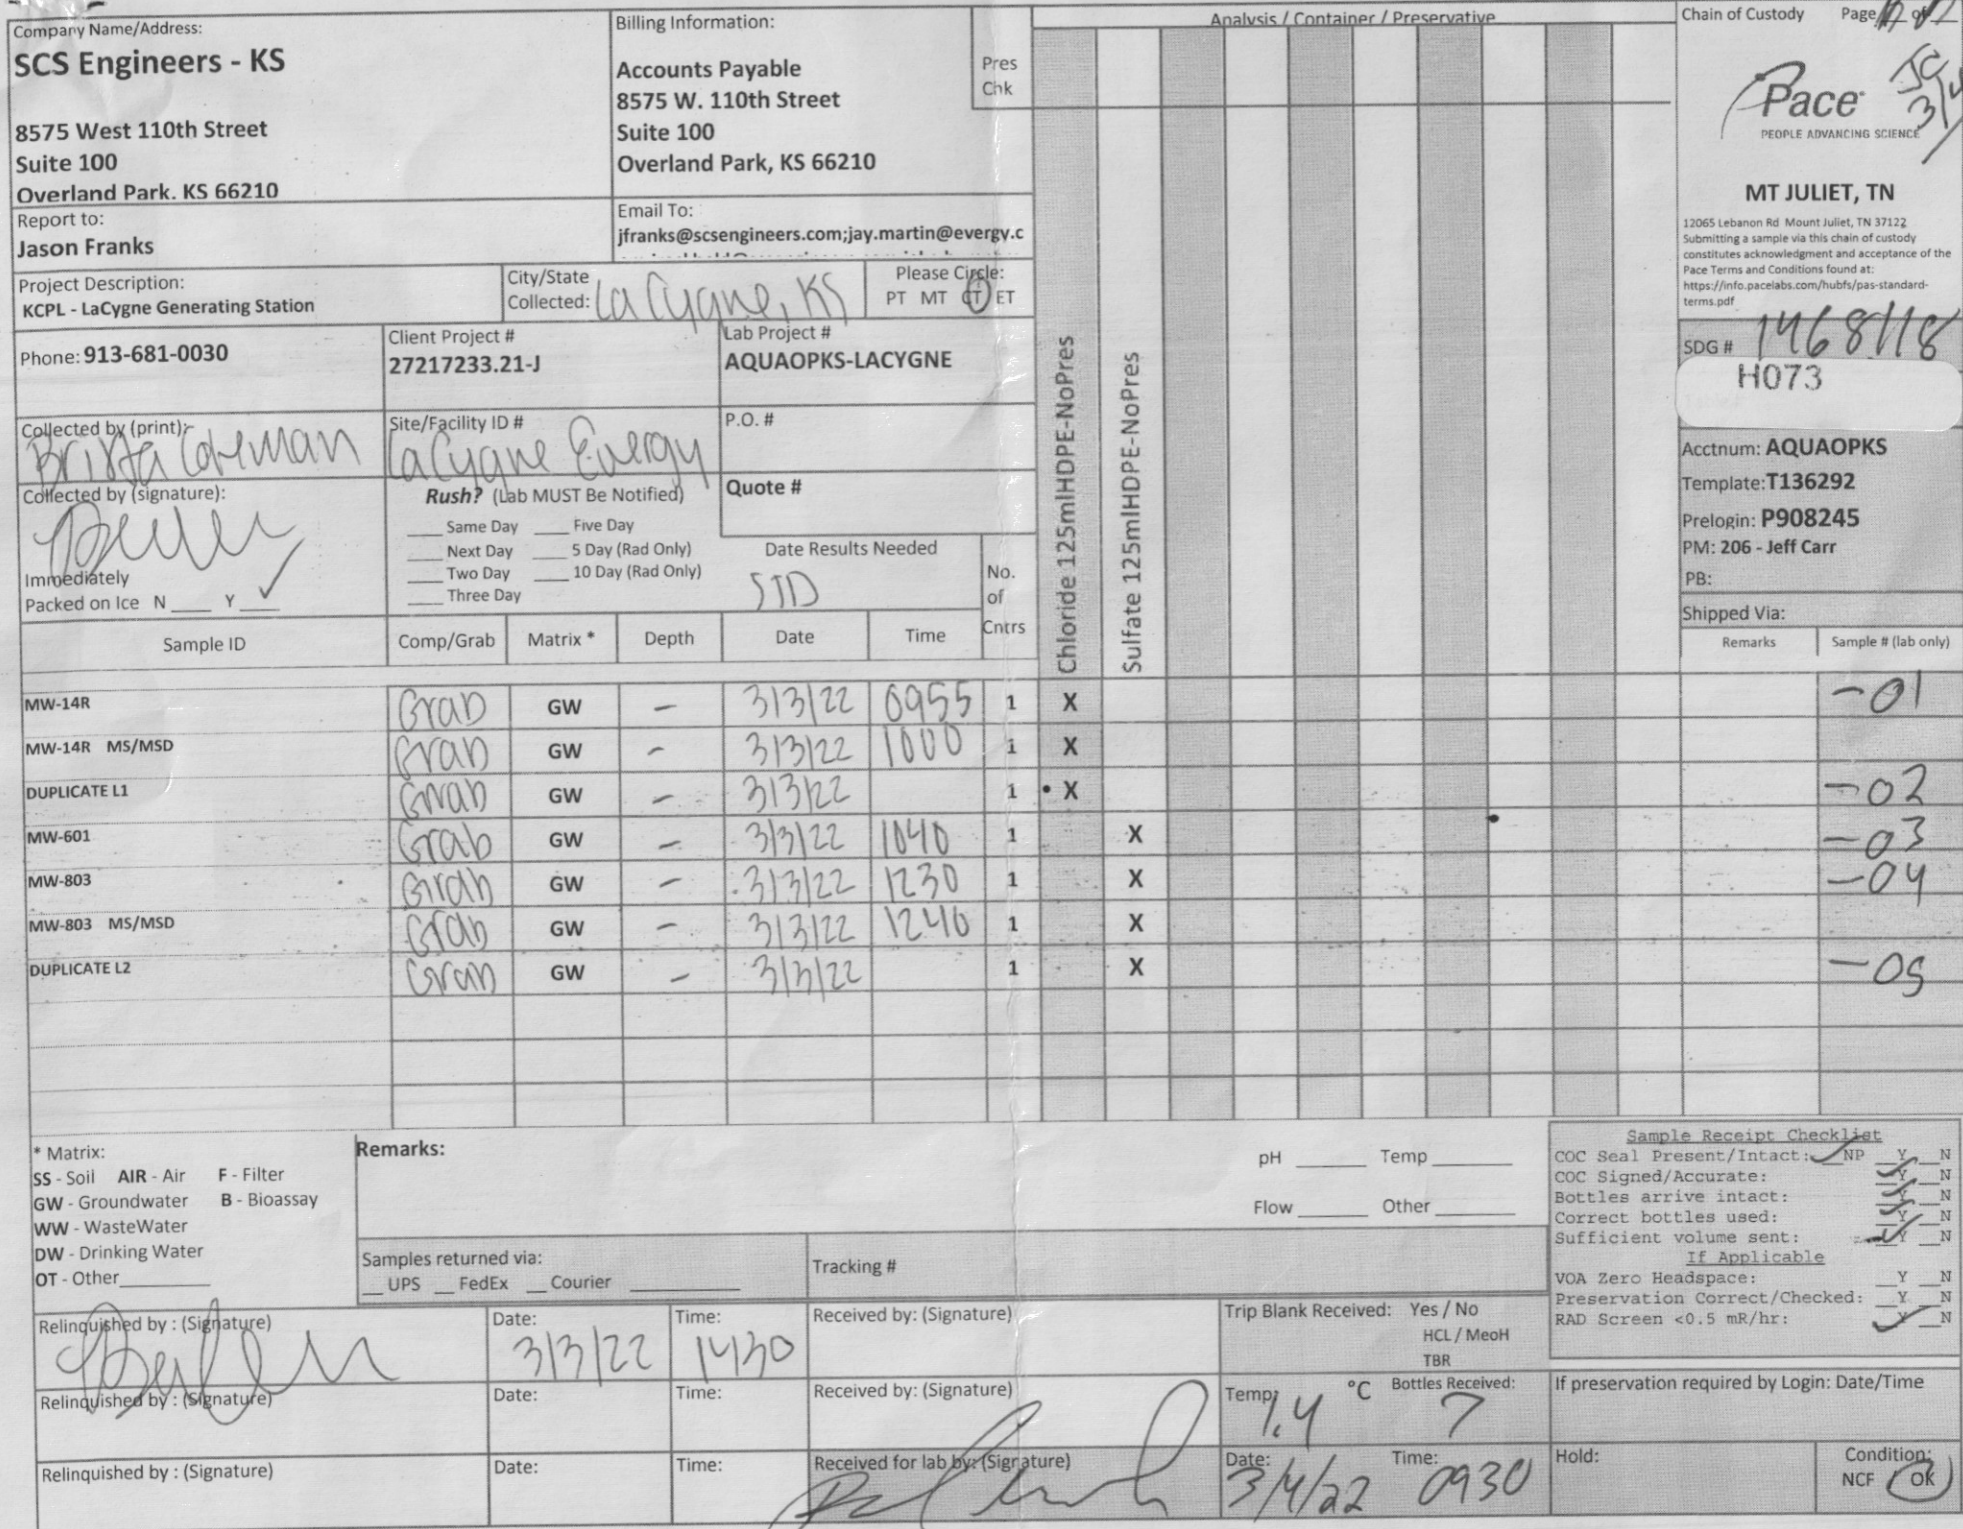 Company Name/Address:
SCS Engineers - KS
8575 West 110th Street
Suite 100
Overland Park. KS 66210
Billing Information:
Accounts Payable
8575 W. 110th Street
Suite 100
Overland Park, KS 66210
Pres
Chk
Analysis / Container / Preservative
Chain of Custody Page
Pace
PEOPLE ADVANCING SCIENCE
JC
MT JULIET, TN
12065 Lebanon Rd Mount Juliet, TN 37122
Submitting a sample via this chain of custody
constitutes acknowledgment and acceptance of the
Pace Terms and Conditions found at:
https://info.pacelabs.com/hubfs/pas-standard-
terms.pdf
Report to:
Jason Franks
Email To:
jfranks@scsengineers.com;jay.martin@evergy.c
Project Description:
KCPL - LaCygne Generating Station
City/State
Collected: LaCygne, KS
Please Circle:
PT MT CT ET
Phone: 913-681-0030
Client Project #
27217233.21-J
Lab Project #
AQUAOPKS-LACYGNE
SDG # 1468118
H073
Collected by (print):
Site/Facility ID #
LaCygne Evergy
P.O. #
Acctnum: AQUAOPKS
Template: T136292
Prelogin: P908245
PM: 206 - Jeff Carr
PB:
Shipped Via:
Collected by (signature):
Rush? (Lab MUST Be Notified)
___ Same Day ___ Five Day
___ Next Day ___ 5 Day (Rad Only)
___ Two Day ___ 10 Day (Rad Only)
___ Three Day
Quote #
Date Results Needed
STD
Immediately
Packed on Ice N ___ Y ✓
No.
of
Cntrs
Chloride 125mlHDPE-NoPres
Sulfate 125mlHDPE-NoPres
Sample ID Comp/Grab Matrix * Depth Date Time Remarks Sample # (lab only)
MW-14R Grab GW – 3/3/22 0955 1 X -01
MW-14R MS/MSD Grab GW – 3/3/22 1000 1 X
DUPLICATE L1 Grab GW – 3/3/22 1 X -02
MW-601 Grab GW – 3/3/22 1040 1 X -03
MW-803 Grab GW – 3/3/22 1230 1 X -04
MW-803 MS/MSD Grab GW – 3/3/22 1240 1 X
DUPLICATE L2 Grab GW – 3/3/22 1 X -05
* Matrix:
SS - Soil AIR - Air F - Filter
GW - Groundwater B - Bioassay
WW - WasteWater
DW - Drinking Water
OT - Other
Remarks:
pH ______ Temp ______
Flow ______ Other ______
Samples returned via:
__ UPS __ FedEx __ Courier ______
Tracking #
Sample Receipt Checklist
COC Seal Present/Intact: ✓ NP _Y _N
COC Signed/Accurate: ✓Y _N
Bottles arrive intact: ✓Y _N
Correct bottles used: ✓Y _N
Sufficient volume sent: ✓Y _N
If Applicable
VOA Zero Headspace: _Y _N
Preservation Correct/Checked: _Y _N
RAD Screen <0.5 mR/hr: ✓Y _N
Relinquished by : (Signature)
Date: 3/3/22
Time: 1430
Received by: (Signature)
Trip Blank Received: Yes / No
HCL / MeoH
TBR
Relinquished by : (Signature)
Date:
Time:
Received by: (Signature)
Temp: 1.4 °C
Bottles Received: 7
If preservation required by Login: Date/Time
Relinquished by : (Signature)
Date:
Time:
Received for lab by: (Signature)
Date: 3/4/22
Time: 0930
Hold:
Condition:
NCF / OK